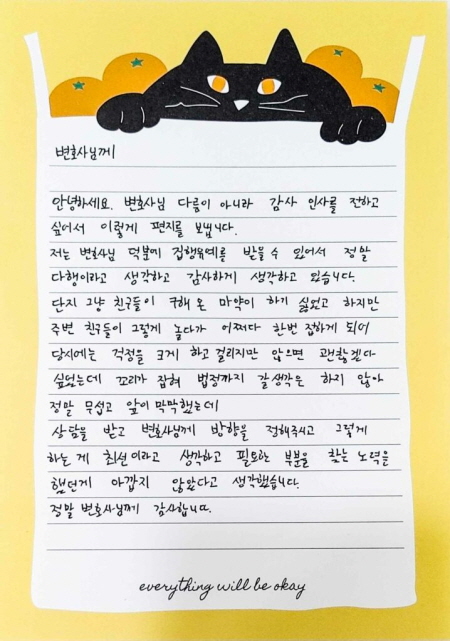 변호사님께
안녕하세요. 변호사님 다름이 아니라 감사 인사를 전하고
싶어서 이렇게 편지를 보냅니다.
저는 변호사님 덕분에 집행유예를 받을 수 있어서 정말
다행이라고 생각하고 감사하게 생각하고 있습니다.
단지 그냥 친구들이 구해 온 마약이 하기 싫었고 하지만
주변 친구들이 그렇게 놀다가 어쩌다 한번 접하게 되어
당시에는 걱정을 크게 하고 걸리지만 않으면 괜찮겠다
싶었는데 꼬리가 잡혀 법정까지 갈 생각은 하지 않아
정말 무섭고 앞이 막막했는데
상담을 받고 변호사님께 방향을 정해주시고 그렇게
하는 게 최선이라고 생각하고 필요한 부분을 찾는 노력을
했던게 아깝지 않았다고 생각했습니다.
정말 변호사님께 감사합니다.
everything will be okay